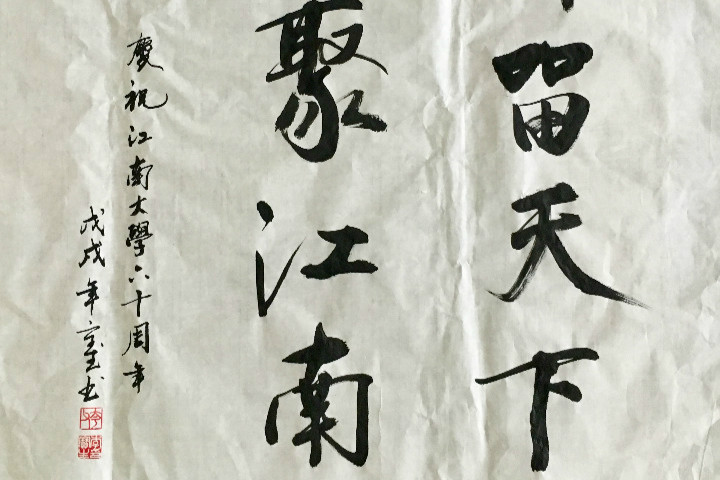 留天下
聚江南
慶祝江南大學六十周年
戊戌年宝玉书